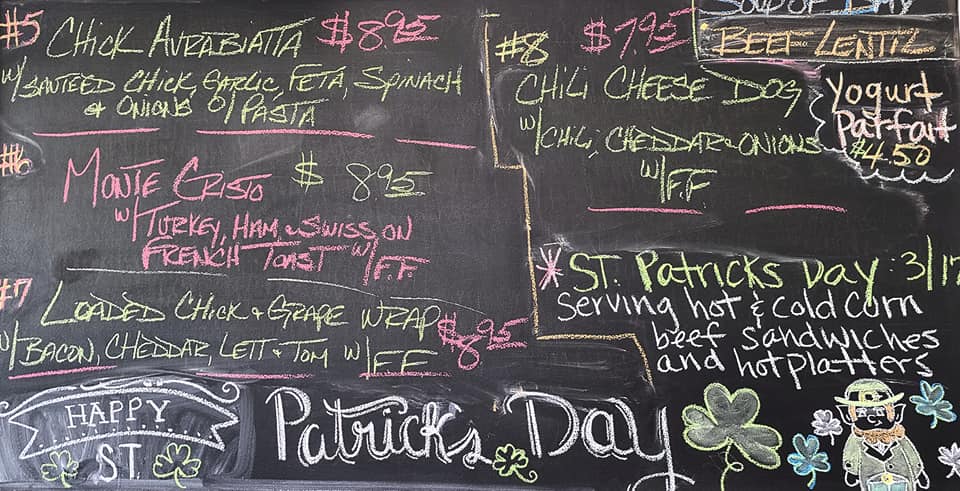 #5 CHICK AVRABIATTA $8.95
W/SAUTEED CHICK, GARLIC, FETA, SPINACH
& ONIONS O/PASTA
#6
MONTE CRISTO $ 8.95
W/TURKEY, HAM & SWISS, ON
FRENCH TOAST W/F.F.
#7
LOADED CHICK & GRAPE WRAP $8.95
W/BACON, CHEDDAR, LETT & TOM W/FF
#8 $7.95
CHILI CHEESE DOG
W/CHILI, CHEDDAR & ONIONS
W/F.F
SOUP OF DAY
BEEF LENTIL
Yogurt
Parfait
$4.50
* ST. Patricks Day 3/17
Serving hot & cold corn
beef sandwiches
and hot platters
HAPPY
ST.
Patricks Day